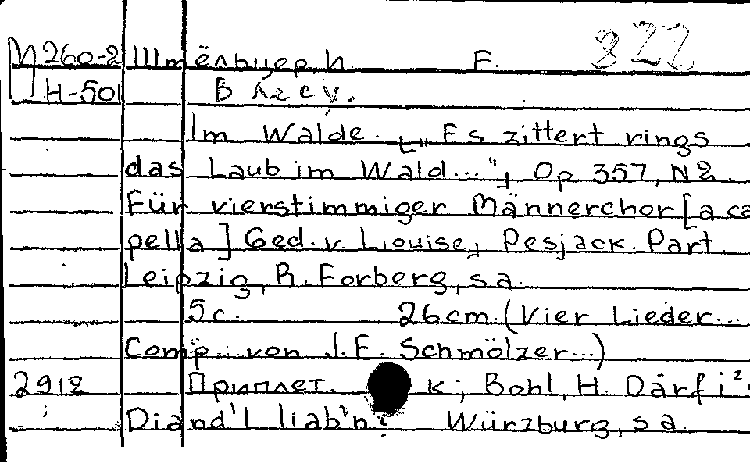 М260-2 Штёльцер, И. Е. 322
Н-501 В лесу.
Im Walde. [„Es zittert rings
das Laub im Wald...“], Op 357, N2.
Für vierstimmiger Männerchor [a ca
pella] Ged. v. Louise, Pesjack. Part.
Leipzig, R. Forberg, s.a.
5c. 26cm. (Vier Lieder...
Comp. von J. E. Schmölzer...)
2912 Приплет. к; Bohl, H. Därf i²
Diand'l liab'n? Würzburg, s.a.